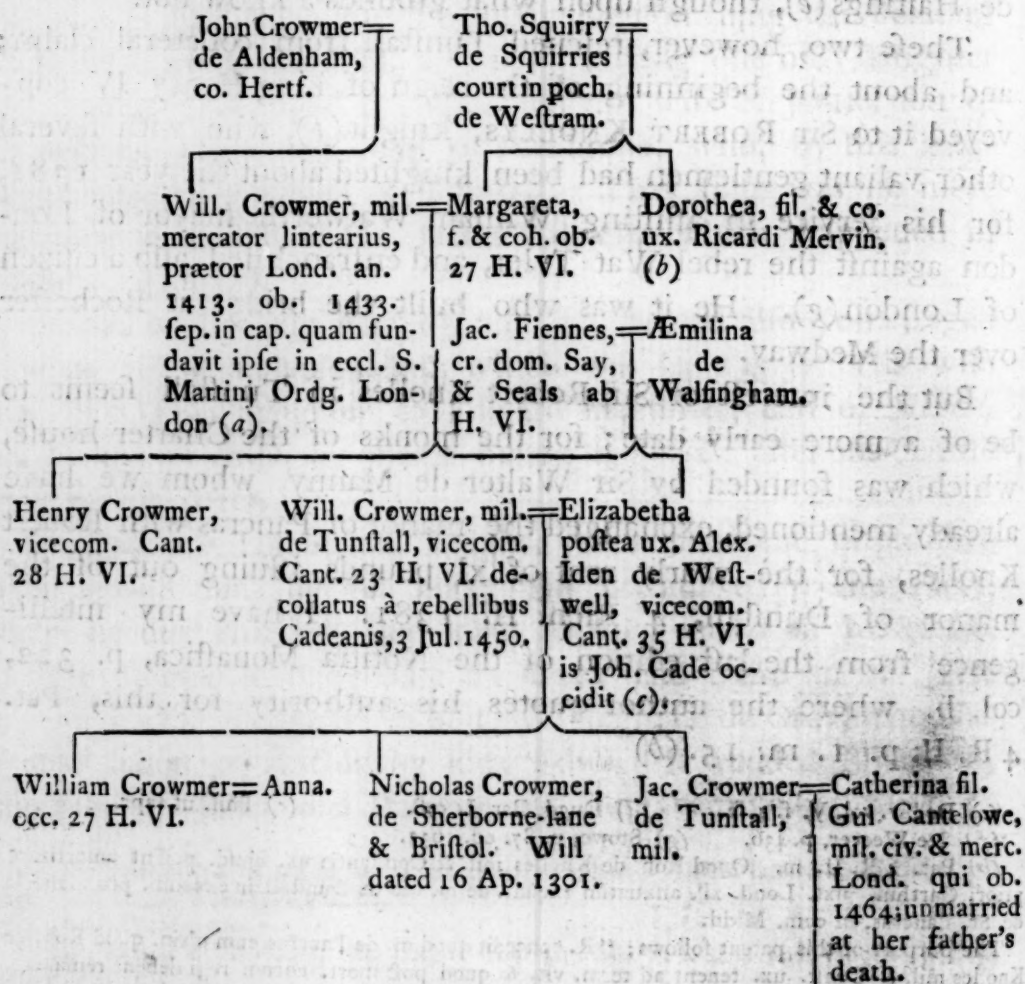 John Crowmer=
de Aldenham,
co. Hertf.
Tho. Squirry =
de Squirries
court in poch.
de Weſtram.
Will. Crowmer, mil.=
mercator lintearius,
prætor Lond. an.
1413. ob. 1433.
ſep. in cap. quam fun-
davit ipſe in eccl. S.
Martini Ordg. Lon-
don (a).
Margareta,
f. & coh. ob.
27 H. VI.
Dorothea, fil. & co.
ux. Ricardi Mervin.
(b)
Jac. Fiennes,=
cr. dom. Say,
& Seals ab
H. VI.
Æmilina
de
Walſingham.
Henry Crowmer,
vicecom. Cant.
28 H. VI.
Will. Crowmer, mil.=
de Tunſtall, vicecom.
Cant. 23 H. VI. de-
collatus à rebellibus
Cadeanis, 3 Jul. 1450.
Elizabetha
poſtea ux. Alex.
Iden de Weſt-
well, vicecom.
Cant. 35 H. VI.
is Joh. Cade oc-
cidit (c).
William Crowmer=Anna.
occ. 27 H. VI.
Nicholas Crowmer,
de Sherborne-lane
& Briſtol. Will
dated 16 Ap. 1301.
Jac. Crowmer=
de Tunſtall,
mil.
Catherina fil.
Gul Cantelowe,
mil. civ. & merc.
Lond. qui ob.
1464; unmarried
at her father's
death.